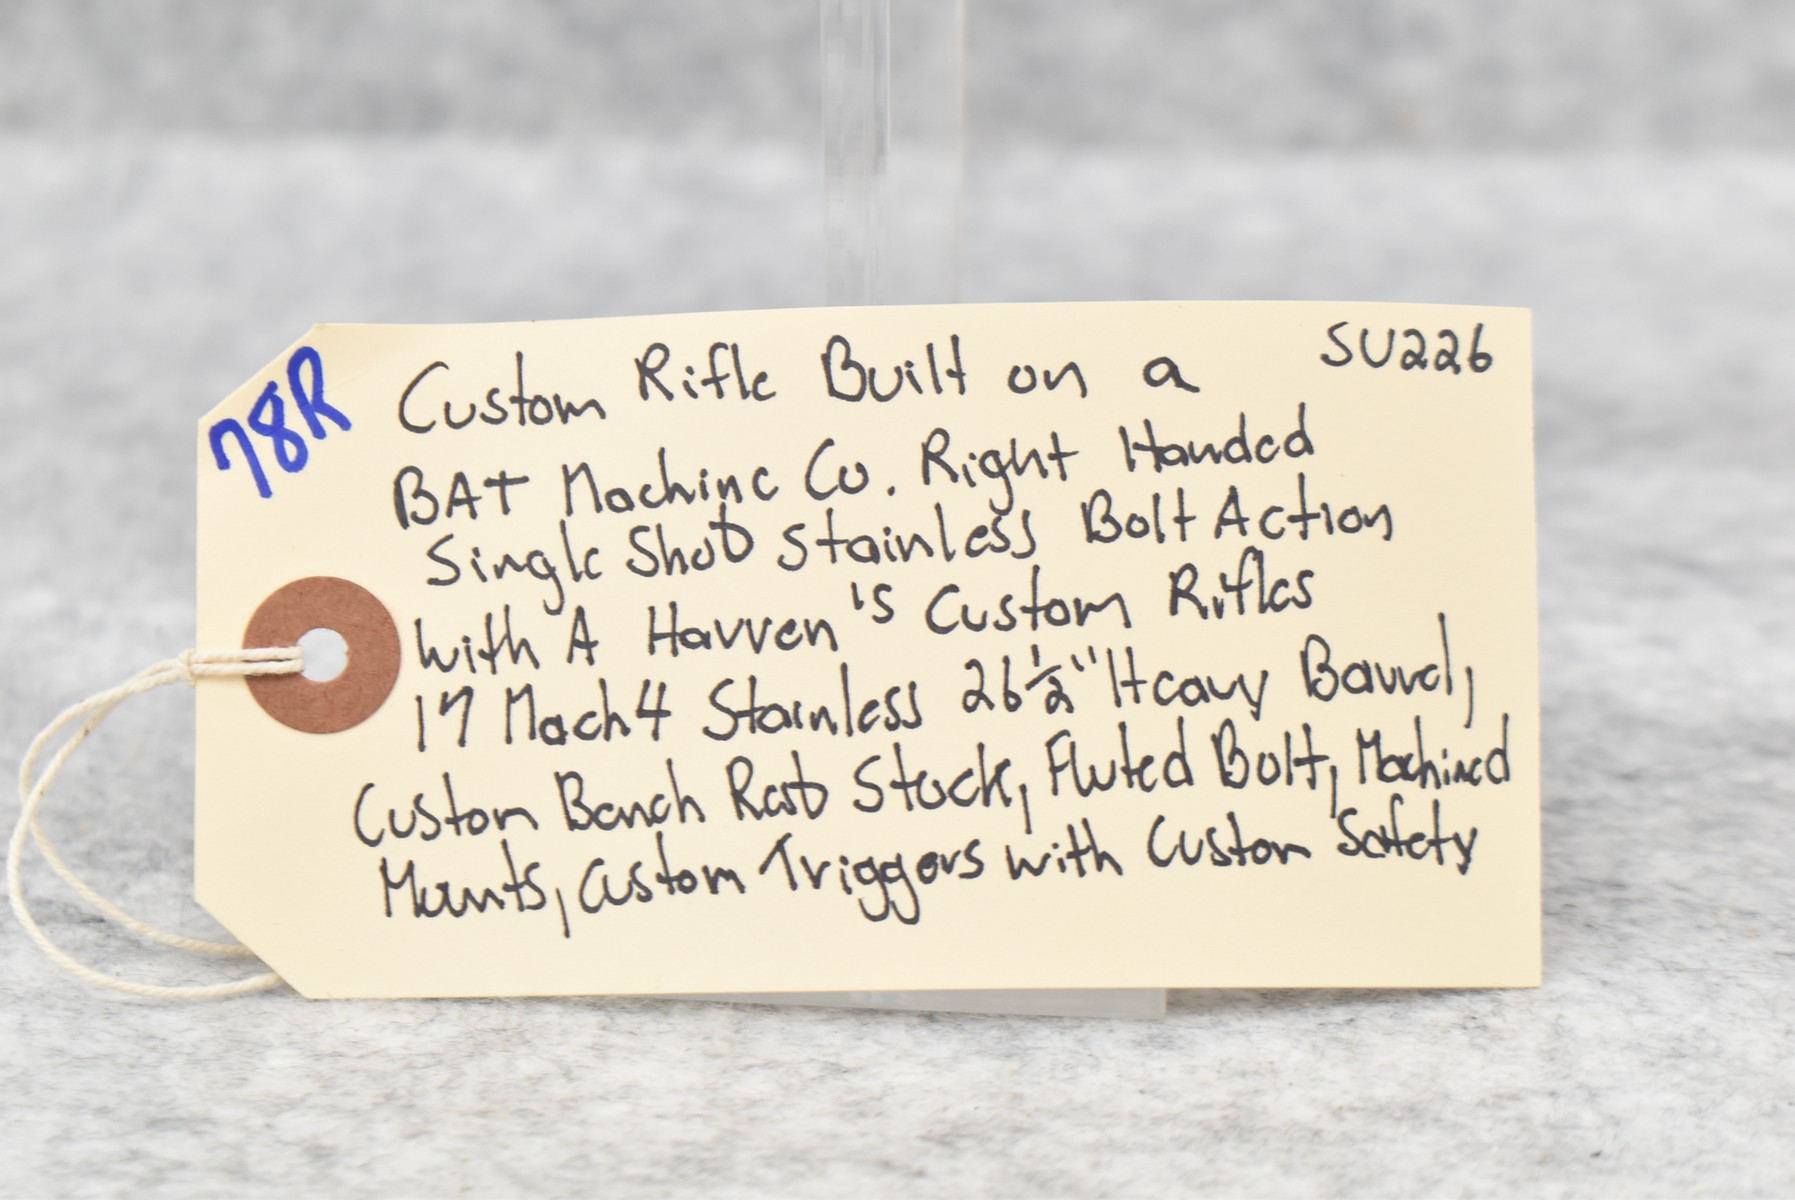 78R
Custom Rifle Built on a SU226
BAT Machine Co. Right Handed
Single Shot Stainless Bolt Action
with A Harren's Custom Rifles
17 Mach 4 Stainless 26 1/2" Heavy Barrel,
Custom Bench Rest Stock, Fluted Bolt, Machined
Mounts, Custom Triggers with Custom Safety